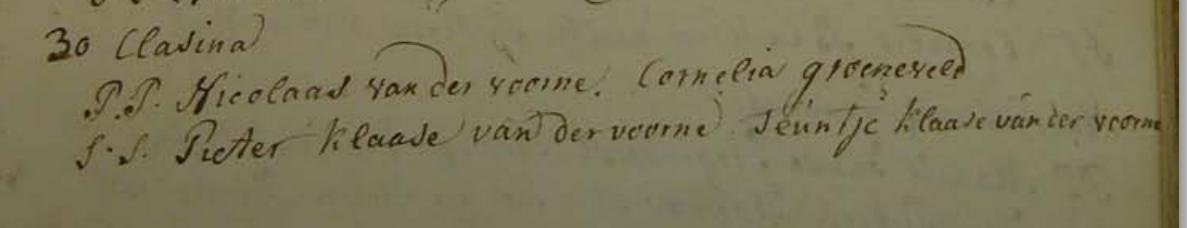 30 Clasina
P.P. Nicolaas van der voorne. Cornelia groeneveld
S.S. Pieter Klaase van der voorne Teuntje Klaase van der voorne